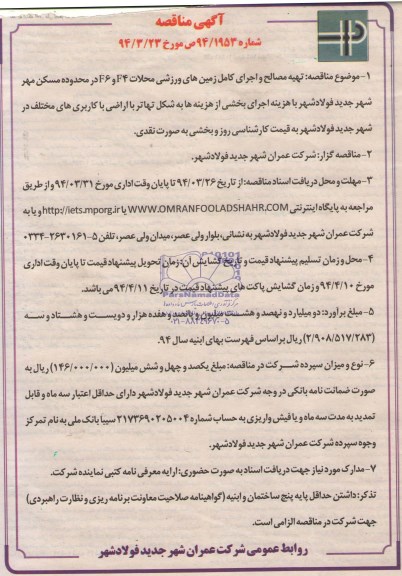 آگهی مناقصه
شماره ۹۴/۱۹۵۳ص مورخ ۹۴/۳/۲۳
۱-موضوع مناقصه: تهیه مصالح و اجرای کامل زمین های ورزشی محلات F۴ و F۶ در محدوده مسکن مهر
شهر جدید فولادشهر با هزینه اجرای بخشی از هزینه ها به شکل تهاتر با اراضی با کاربری های مختلف در
شهر جدید فولادشهر به قیمت کارشناسی روز و بخشی به صورت نقدی.
۲-مناقصه گزار: شرکت عمران شهر جدید فولادشهر.
۳-مهلت و محل دریافت اسناد مناقصه: از تاریخ ۹۴/۰۳/۲۶ تا پایان وقت اداری مورخ ۹۴/۰۳/۳۱ و از طریق
مراجعه به پایگاه اینترنتی WWW.OMRANFOOLADSHAHR.COM یا http://iets.mporg.ir و یا به
شرکت عمران شهر جدید فولادشهر به نشانی، بلوار ولی عصر، میدان ولی عصر، تلفن ۵-۲۶۳۰۱۶۱-۰۳۳۴
۴-محل و زمان تسلیم پیشنهاد قیمت و تاریخ گشایش آن: زمان تحویل پیشنهاد قیمت تا پایان وقت اداری
مورخ ۹۴/۴/۱۰ و زمان گشایش پاکت های پیشنهاد قیمت در تاریخ ۹۴/۴/۱۱ می باشد.
ParsNamadData
۰۲۱-۸۸۳۴۹۶۷۰-۵
۵-مبلغ برآورد: دو میلیارد و نهصد و هشت میلیون و پانصد و هفده هزار و دویست و هشتاد و سه
(۲/۹۰۸/۵۱۷/۲۸۳) ریال بر اساس فهرست بهای ابنیه سال ۹۴.
۶-نوع و میزان سپرده شرکت در مناقصه: مبلغ یکصد و چهل و شش میلیون (۱۴۶/۰۰۰/۰۰۰) ریال به
صورت ضمانت نامه بانکی در وجه شرکت عمران شهر جدید فولادشهر دارای حداقل اعتبار سه ماه و قابل
تمدید به مدت سه ماه و یا فیش واریزی به حساب شماره ۲۱۷۳۶۹۰۲۰۵۰۰۴ سیبا بانک ملی به نام تمرکز
وجوه سپرده شرکت عمران شهر جدید فولادشهر.
۷-مدارک مورد نیاز جهت دریافت اسناد به صورت حضوری: ارایه معرفی نامه کتبی نماینده شرکت.
تذکر: داشتن حداقل پایه پنج ساختمان و ابنیه (گواهینامه صلاحیت معاونت برنامه ریزی و نظارت راهبردی)
جهت شرکت در مناقصه الزامی است.
روابط عمومی شرکت عمران شهر جدید فولادشهر